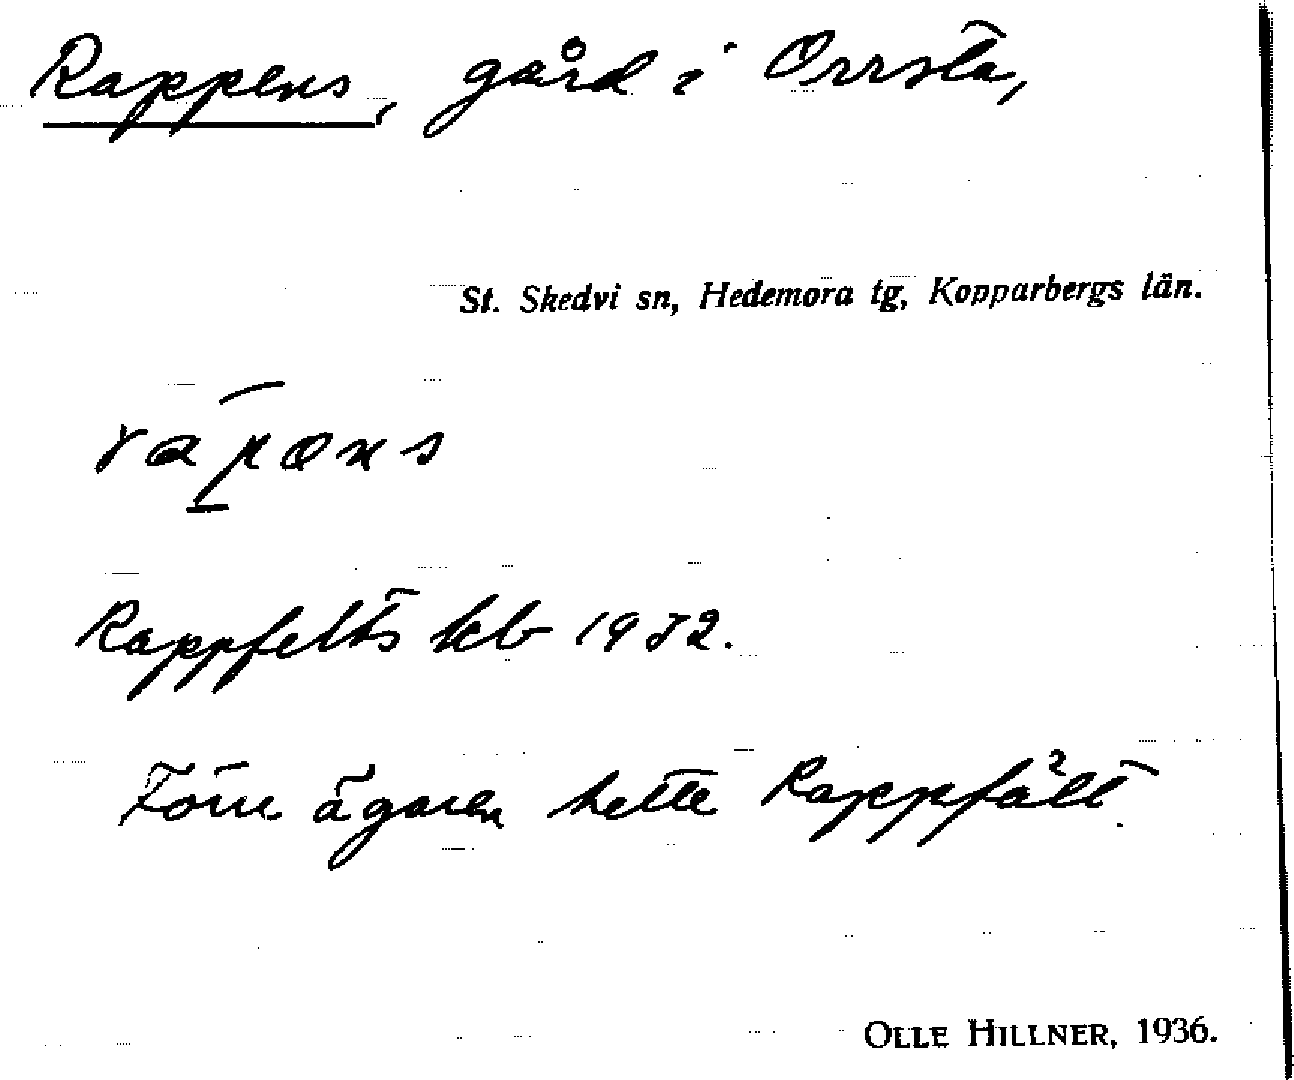 Rappens, gård i Orrsta,
St. Skedvi sn, Hedemora tg, Kopparbergs län.
rapens
Rappfelts kb 1932.
Förre ägaren hette Rappfält.
OLLE HILLNER, 1936.